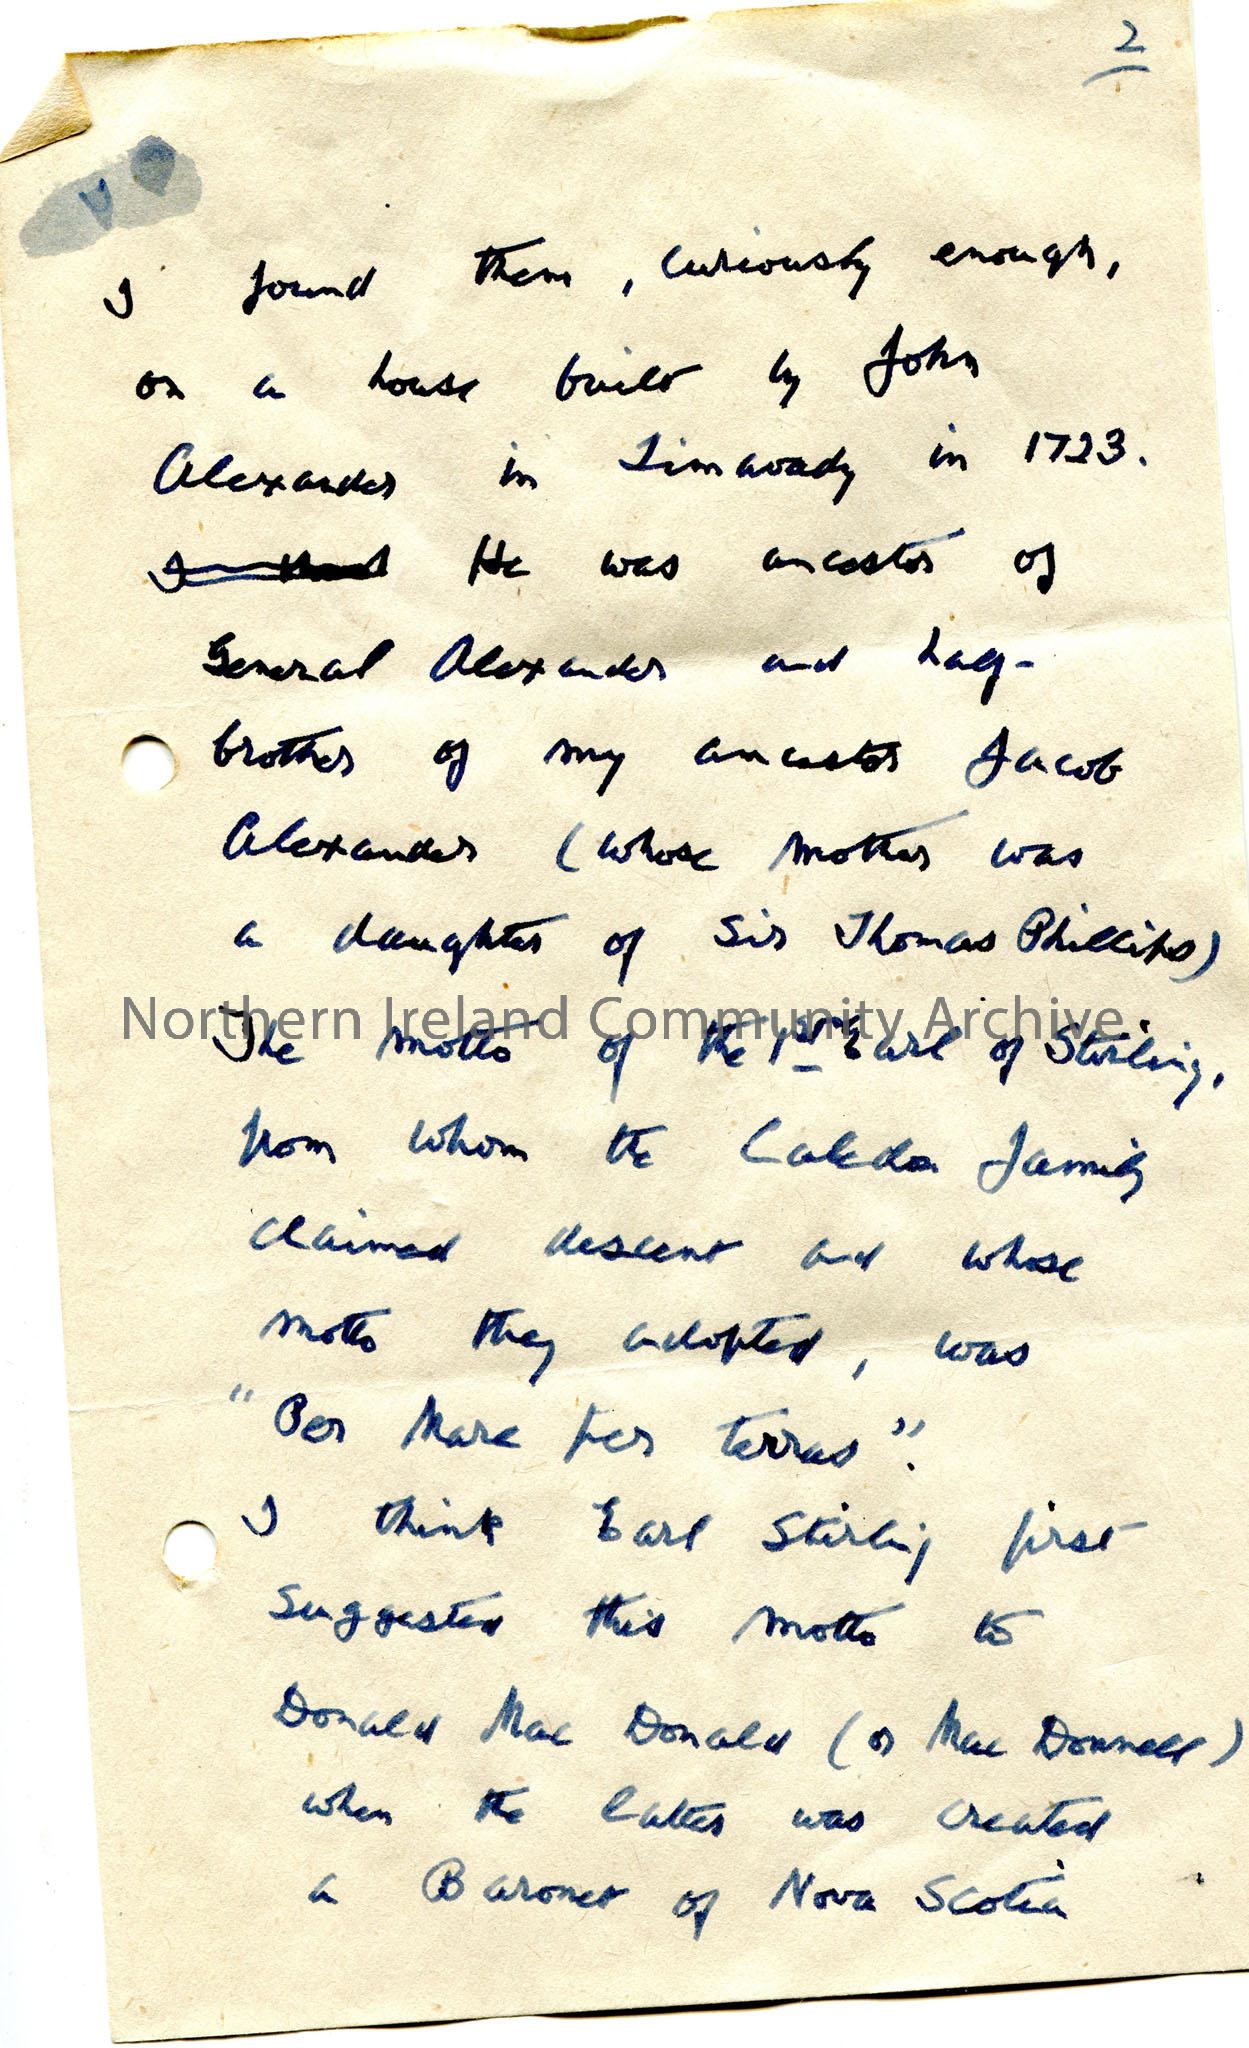 2
I found them, curiously enough,
on a house built by John
Alexander in Limavady in 1723.
He was ancestor of
General Alexander and half-
brother of my ancestor Jacob
Alexander (whose mother was
a daughter of Sir Thomas Phillips)
Northern Ireland Community Archive
The motto of the 1st Earl of Stirling,
from whom the Caledon family
claimed descent and whose
motto they adopted, was
"Per Mare per terras".
I think Earl Stirling first
suggested this motto to
Donald Mac Donald (or Mac Donnell)
when the latter was created
a Baronet of Nova Scotia